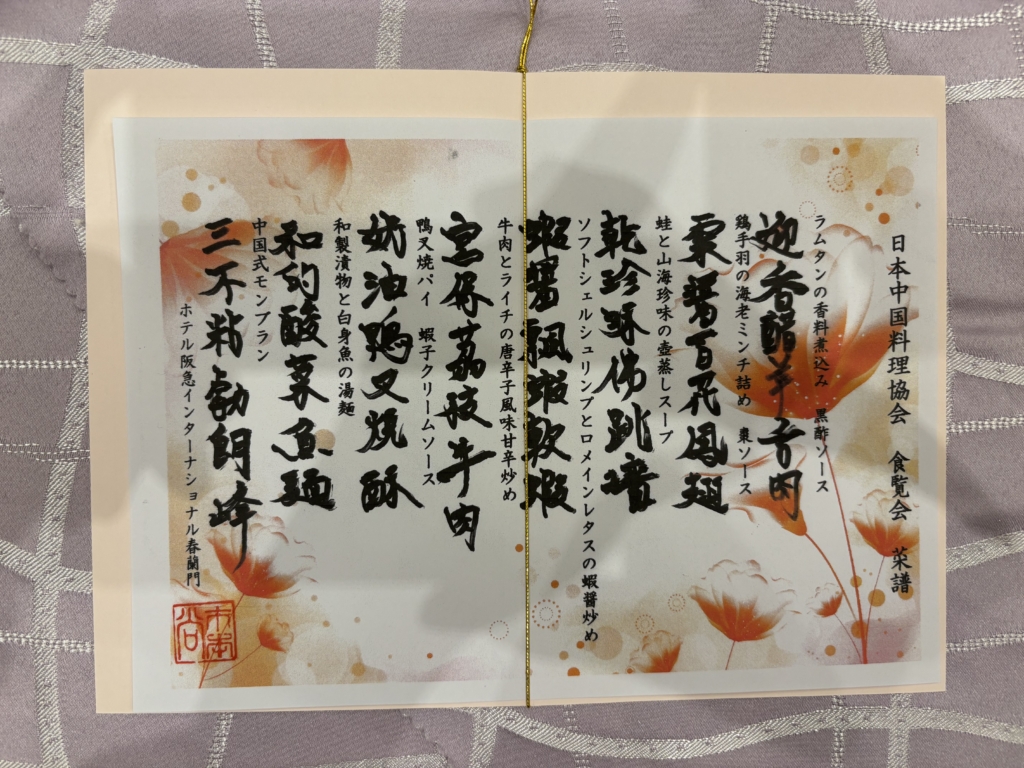 日本中国料理協会　食覧会　菜譜
ラムタンの香料煮込み　黒酢ソース
迎香醋羊舌肉
鶏手羽の海老ミンチ詰め　棗ソース
醤百花鳳翅
蛙と山海珍味の壺蒸しスープ
乾珍佛跳墻
ソフトシェルシュリンプとロメインレタスの蝦醤炒め
蝦醤飄蝦軟蝦
牛肉とライチの唐辛子風味甘辛炒め
宮保荔枝牛肉
鴨叉焼パイ　蝦子クリームソース
奶油鴨叉焼酥
和製漬物と白身魚の湯麺
和的酸菜魚麺
中国式モンブラン
三不粘勃朗峰
ホテル阪急インターナショナル春蘭門